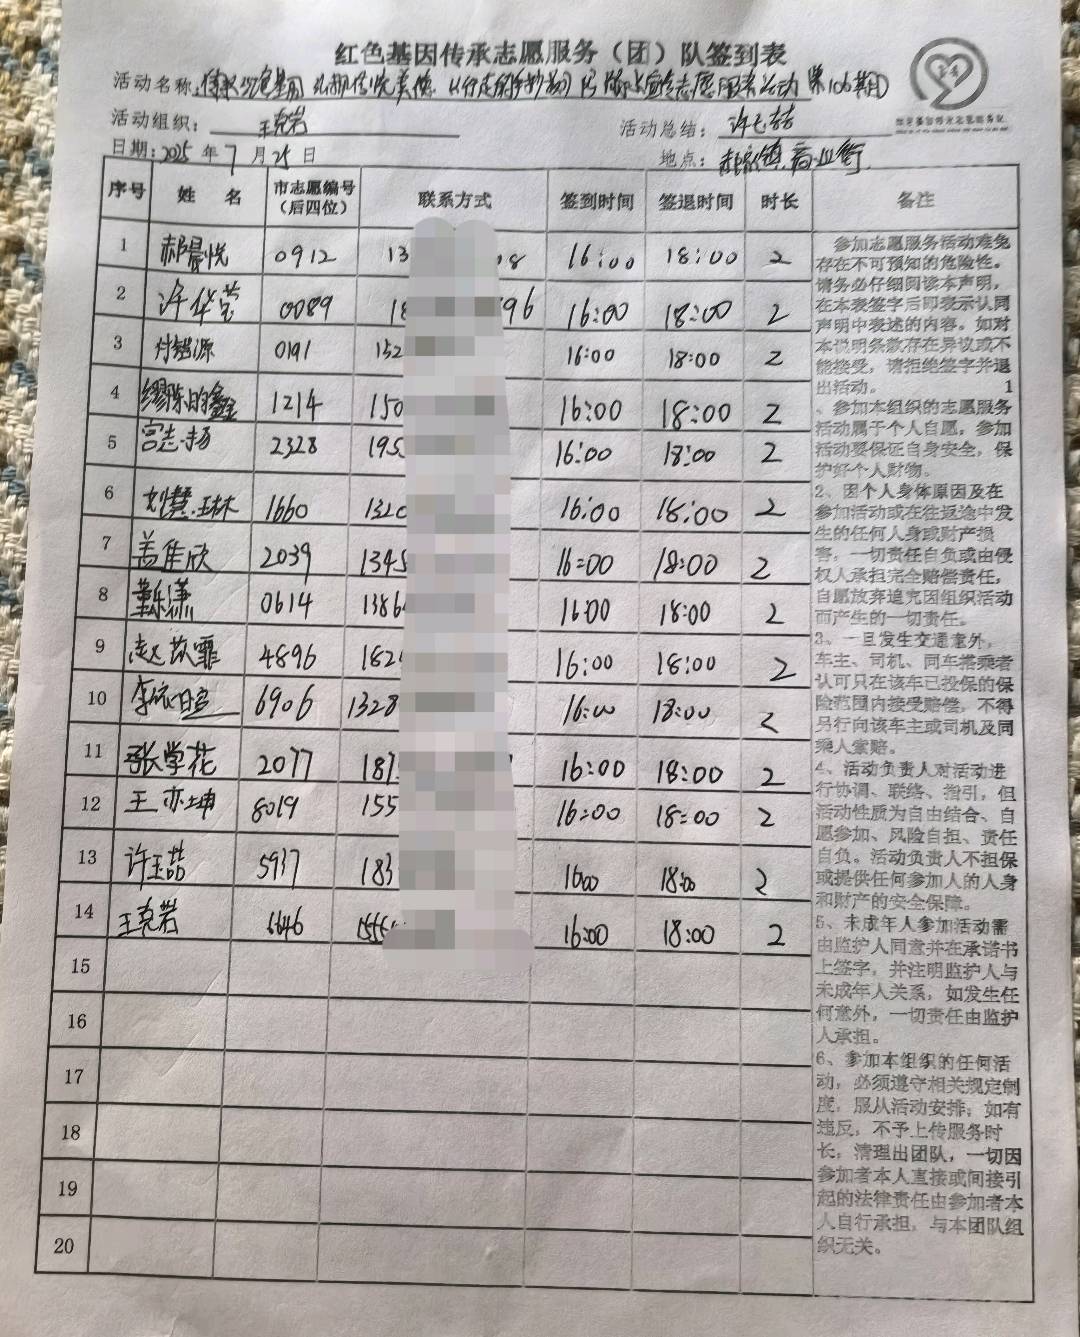 红色基因传承志愿服务（团）队签到表
活动名称：传承红色基因 第106期
活动组织：王克岩 活动总结：许玉喆
日期：2025 年 7 月 25 日 地点：镇商业街
序号 姓 名 市志愿编号（后四位） 联系方式 签到时间 签退时间 时长 备注
1 郝晨悦 0912 13 08 16:00 18:00 2
2 许华莹 0089 18 96 16:00 18:00 2
3 付锴源 0191 132 16:00 18:00 2
4 1214 150 16:00 18:00 2
5 宫志扬 2328 195 16:00 18:00 2
6 刘慧琳 1660 1320 16:00 18:00 2
7 盖隹欣 2039 1345 16:00 18:00 2
8 0614 1386 16:00 18:00 2
9 赵歆霏 4896 182 16:00 18:00 2
10 李依暄 6906 1328 16:00 18:00 2
11 张学花 2077 187 16:00 18:00 2
12 王亦坤 8019 155 16:00 18:00 2
13 许玉喆 5937 183 16:00 18:00 2
14 王克岩 6646 1556 16:00 18:00 2
15
16
17
18
19
20
参加志愿服务活动难免
存在不可预知的危险性。
请务必仔细阅读本声明，
在本表签字后即表示认同
声明中表述的内容。如对
本说明条款存在异议或不
能接受，请拒绝签字并退
出活动。 1
、参加本组织的志愿服务
活动属于个人自愿，参加
活动要保证自身安全，保
护好个人财物。
2、因个人身体原因及在
参加活动或在往返途中发
生的任何人身或财产损
害，一切责任自负或由侵
权人承担完全赔偿责任，
自愿放弃追究因组织活动
而产生的一切责任。
3、一旦发生交通意外，
车主、司机、同车搭乘者
认可只在该车已投保的保
险范围内接受赔偿，不得
另行向该车主或司机及同
乘人索赔。
4、活动负责人对活动进
行协调、联络、指引，但
活动性质为自由结合、自
愿参加、风险自担、责任
自负。活动负责人不担保
或提供任何参加人的人身
和财产的安全保障。
5、未成年人参加活动需
由监护人同意并在承诺书
上签字，并注明监护人与
未成年人关系，如发生任
何意外，一切责任由监护
人承担。
6、参加本组织的任何活
动，必须遵守相关规定制
度，服从活动安排，如有
违反，不予上传服务时
长，清理出团队，一切因
参加者本人直接或间接引
起的法律责任由参加者本
人自行承担，与本团队组
织无关。